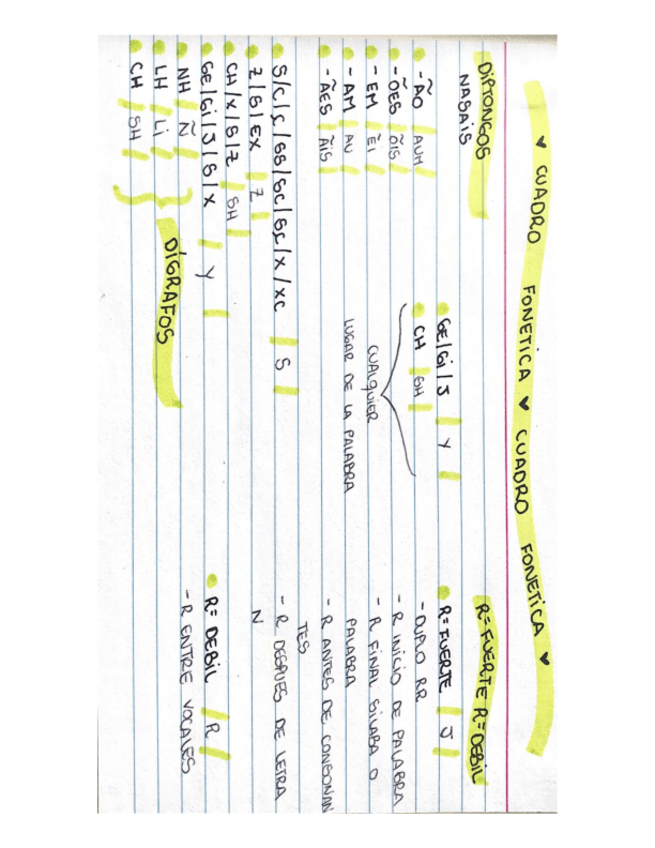 ♥ CUADRO FONETICA ♥ CUADRO FONETICA ♥
DIPTONGOS
NASAIS
-ÃO / AUM /
-ÕES / ÕIS /
-EM / ẼI /
-AM / AU /
-ÃES / ÃIS /
S/C/Ç/SS/SC/SÇ/X/XC / S /
Z/S/EX / Z /
CH/X/S/Z / SH /
GE/GI/J/G/X / Y /
NH / Ñ /
LH / Li /
CH / SH /
DÍGRAFOS
GE/Gi/J / Y /
CH / SH /
CUALQUIER
LUGAR DE LA PALABRA
R=FUERTE R=DEBIL
R=FUERTE / J /
- DUPLO RR
- R INICIO DE PALABRA
- R FINAL SILABA O
PALABRA
- R ANTES DE CONSONAN
TES
- R DESPUES DE LETRA
N
R= DEBIL / R /
- R ENTRE VOCALES